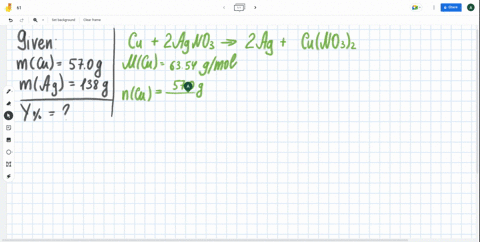 61
Share
Set background Clear frame
Given:
m(Cu) = 57.0 g
m(Ag) = 138 g
Y% = ?
Cu + 2AgNO₃ → 2Ag + Cu(NO₃)₂
M(Cu) = 63.54 g/mol
n(Cu) = 57. g